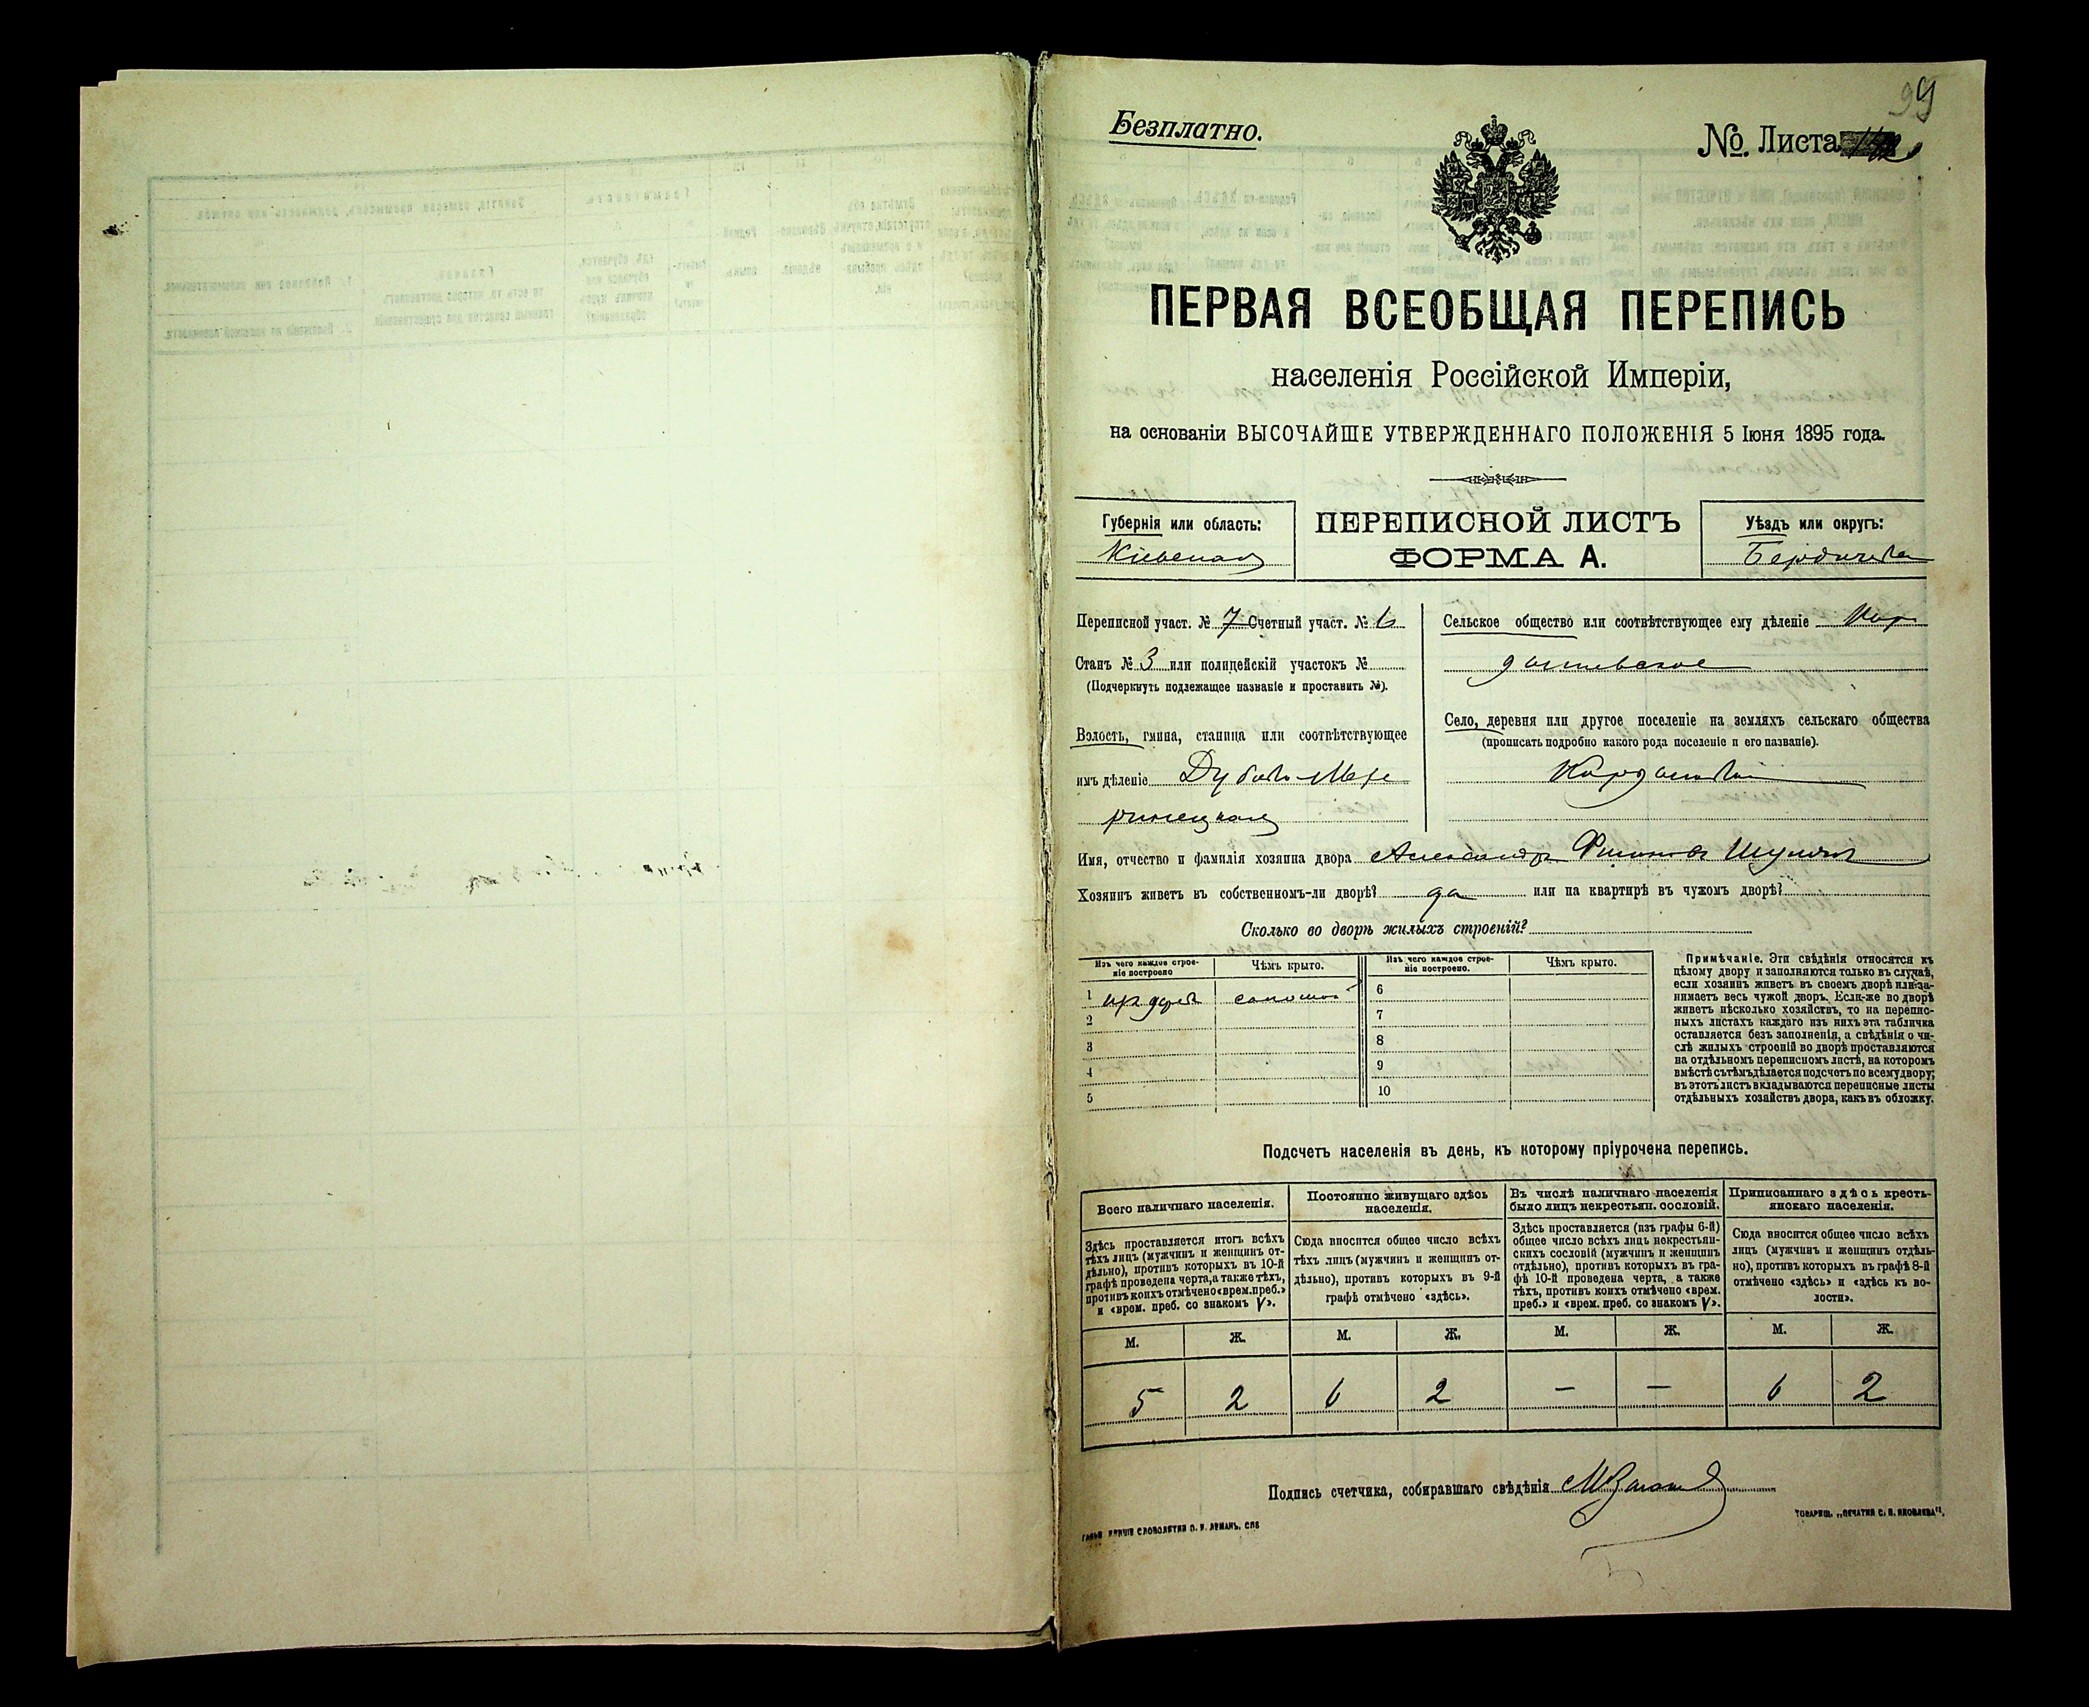 99
Безплатно.
№. Листа
ПЕРВАЯ ВСЕОБЩАЯ ПЕРЕПИСЬ
населенія Россійской Имперіи,
на основаніи ВЫСОЧАЙШЕ УТВЕРЖДЕННАГО ПОЛОЖЕНІЯ 5 Іюня 1895 года.
Губернія или область:
Кіевская
ПЕРЕПИСНОЙ ЛИСТЪ
ФОРМА А.
Уѣздъ или округъ:
Бердичевск
Переписной участ. № 7 Счетный участ. № 6
Станъ № 3 или полицейскій участокъ №
(Подчеркнуть подлежащее названіе и проставить №).
Волость, гмина, станица или соотвѣтствующее
имъ дѣленіе Дубово-Мах
ринецкая
Сельское общество или соотвѣтствующее ему дѣленіе Кор
дышевское
Село, деревня или другое поселеніе на земляхъ сельскаго общества
(прописать подробно какого рода поселеніе и его названіе).
Имя, отчество и фамилія хозяина двора Александръ
Хозяинъ живетъ въ собственномъ-ли дворѣ? да или на квартирѣ въ чужомъ дворѣ?
Сколько во дворѣ жилыхъ строеній?
Изъ чего каждое строе-
ніе построено
Чѣмъ крыто.
Изъ чего каждое строе-
ніе построено.
Чѣмъ крыто.
1 изъ дерев соломой
2
3
4
5
6
7
8
9
10
Примѣчаніе. Эти свѣдѣнія относятся къ
цѣлому двору и заполняются только въ случаѣ,
если хозяинъ живетъ въ своемъ дворѣ или за-
нимаетъ весь чужой дворъ. Если-же во дворѣ
живетъ нѣсколько хозяйствъ, то на перепис-
ныхъ листахъ каждаго изъ нихъ эта табличка
оставляется безъ заполненія, а свѣдѣнія о чи-
слѣ жилыхъ строеній во дворѣ проставляются
на отдѣльномъ переписномъ листѣ, на которомъ
вмѣстѣ съ тѣмъ дѣлается подсчетъ по всему двору;
въ этотъ листъ вкладываются переписные листы
отдѣльныхъ хозяйствъ двора, какъ въ обложку.
Подсчетъ населенія въ день, къ которому пріурочена перепись.
Всего наличнаго населенія.
Здѣсь проставляется итогъ всѣхъ
тѣхъ лицъ (мужчинъ и женщинъ от-
дѣльно), противъ которыхъ въ 10-й
графѣ проведена черта, а также тѣхъ,
противъ коихъ отмѣчено «врем. преб.»
и «врем. преб. со знакомъ V».
Постоянно живущаго здѣсь
населенія.
Сюда вносится общее число всѣхъ
тѣхъ лицъ (мужчинъ и женщинъ от-
дѣльно), противъ которыхъ въ 9-й
графѣ отмѣчено «здѣсь».
Въ числѣ наличнаго населенія
было лицъ некрестьян. сословій.
Здѣсь проставляется (изъ графы 6-й)
общее число всѣхъ лицъ некрестьян-
скихъ сословій (мужчинъ и женщинъ
отдѣльно), противъ которыхъ въ гра-
фѣ 10-й проведена черта, а также
тѣхъ, противъ коихъ отмѣчено «врем.
преб.» и «врем. преб. со знакомъ V».
Приписаннаго здѣсь кресть-
янскаго населенія.
Сюда вносится общее число всѣхъ
лицъ (мужчинъ и женщинъ отдѣль-
но), противъ которыхъ въ графѣ 8-й
отмѣчено «здѣсь» и «здѣсь къ во-
лости».
М. Ж. М. Ж. М. Ж. М. Ж.
5 2 6 2 — — 6 2
Подпись счетчика, собиравшаго свѣдѣнія
СЛОВОЛИТНИ О. И. ЛЕМАНЪ, СПБ
ТОВАРИЩ. „ПЕЧАТНЯ С. П. ЯКОВЛЕВА".